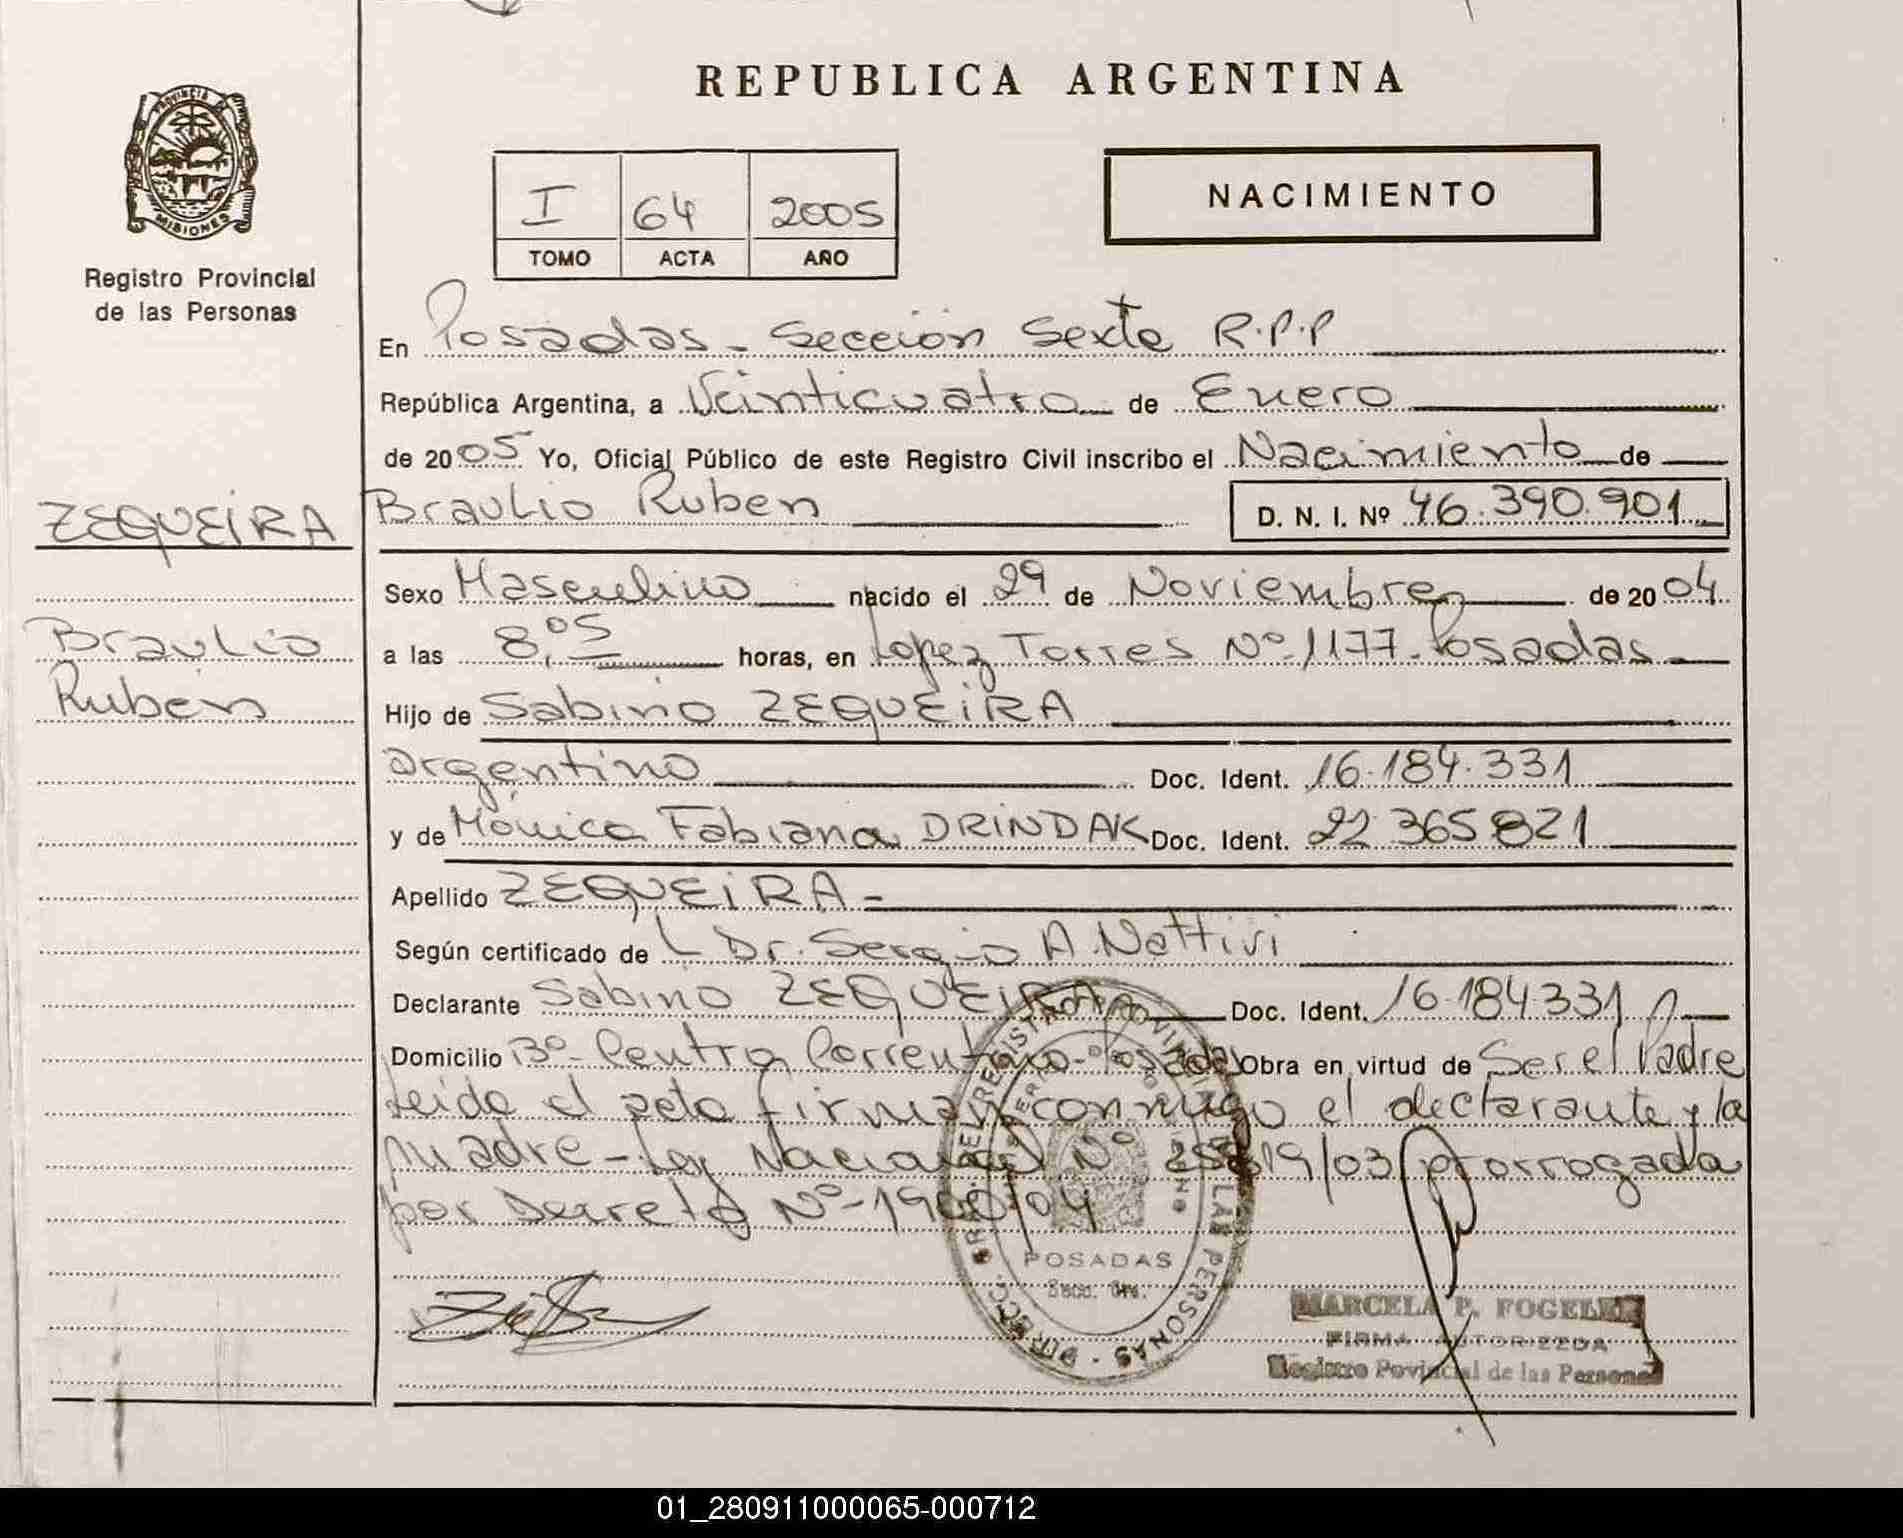 REPUBLICA ARGENTINA
PROVINCIA DE
MISIONES
Registro Provincial
de las Personas
I 64 2005
TOMO ACTA AÑO
NACIMIENTO
En Posadas - Sección Sexta R.P.P
República Argentina, a Veinticuatro de Enero
de 2005 Yo, Oficial Público de este Registro Civil inscribo el Nacimiento de
ZEQUEIRA
Braulio Ruben
D. N. I. Nº 46.390.901
Sexo Masculino nacido el 29 de Noviembre de 2004
Braulio
Ruben
a las 8,05 horas, en Lopez Torres Nº 1177 - Posadas
Hijo de Sabino ZEQUEIRA
argentino Doc. Ident. 16.184.331
y de Mónica Fabiana DRINDAK Doc. Ident. 22.365.821
Apellido ZEQUEIRA -
Según certificado de Dr. Sergio A. Nattivi
Declarante Sabino ZEQUEIRA Doc. Ident. 16.184.331
Domicilio Bº Centro Correntino - Posadas Obra en virtud de Ser el Padre
Leida el acta firman conmigo el declarante y la
madre - Ley Nacional Nº 25819/03 prorrogada
por Decreto Nº 1900/04
POSADAS
MARCELA P. FOGELER
FIRMA AUTORIZADA
Registro Provincial de las Personas
01_280911000065-000712